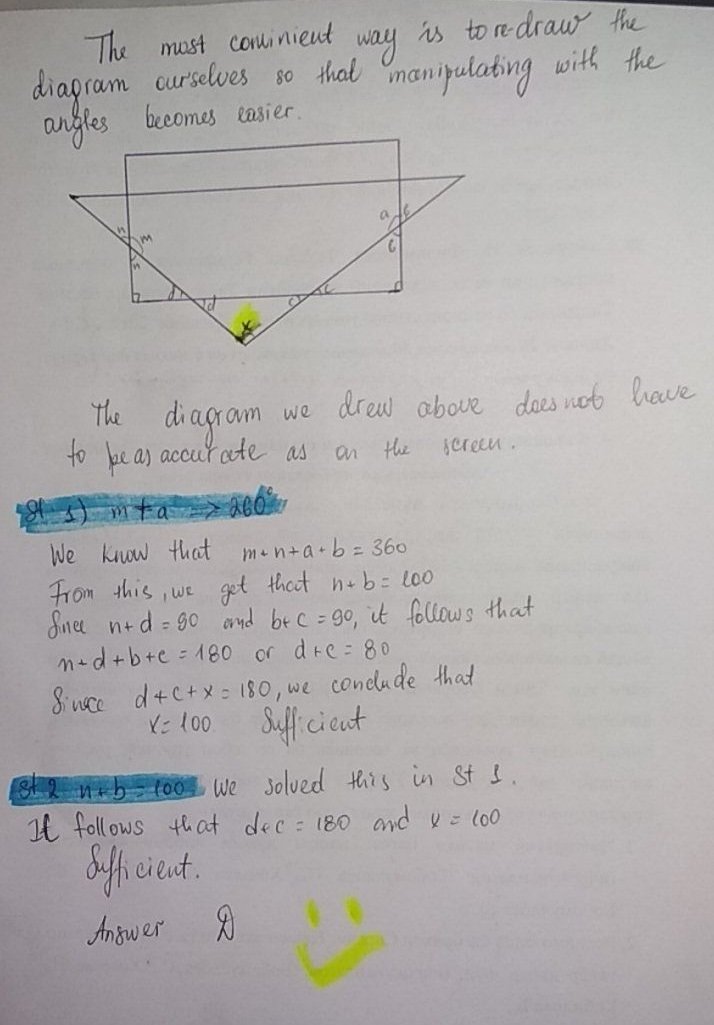 The most convinient way is to re-draw the
diagram ourselves so that manipulating with the
angles becomes easier.
a b
n m
b
n
d d c c
x
The diagram we drew above does not have
to be as accurate as on the screen.
St 1) m+a => 260°
We know that m+n+a+b = 360
From this, we get that n+b = 100
Since n+d = 90 and b+c = 90, it follows that
n+d+b+c = 180 or d+c = 80
Since d+c+x = 180, we conclude that
x = 100 Sufficient
St 2 n+b = 100 We solved this in St 1.
It follows that d+c = 180 and x = 100
Sufficient.
Answer D